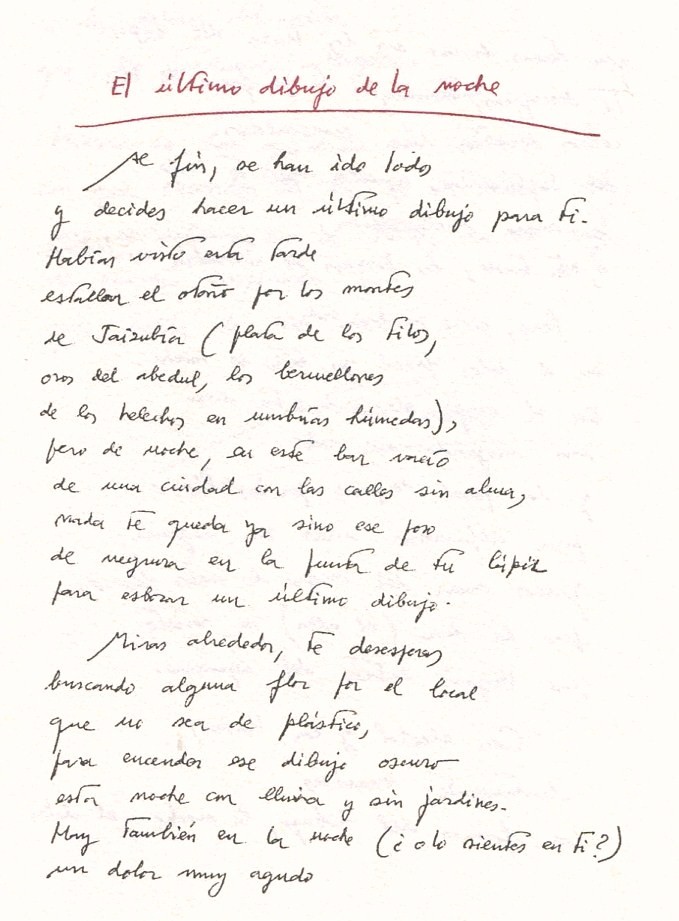 El último dibujo de la noche
Al fin, se han ido todos
y decides hacer un último dibujo para ti.
Habías visto esta tarde
estallar el otoño por los montes
de Jaizubía (plata de los tilos,
oros del abedul, los bermellones
de los helechos en umbrías húmedas),
pero de noche, en este bar vacío
de una ciudad con las calles sin alma,
nada te queda ya sino ese poso
de negrura en la punta de tu lápiz
para esbozar un último dibujo.
Miras alrededor, te desesperas
buscando alguna flor por el local
que no sea de plástico,
para encender ese dibujo oscuro
esta noche con lluvia y sin jardines.
Hay también en la noche (¿o lo sientes en ti?)
un dolor muy agudo